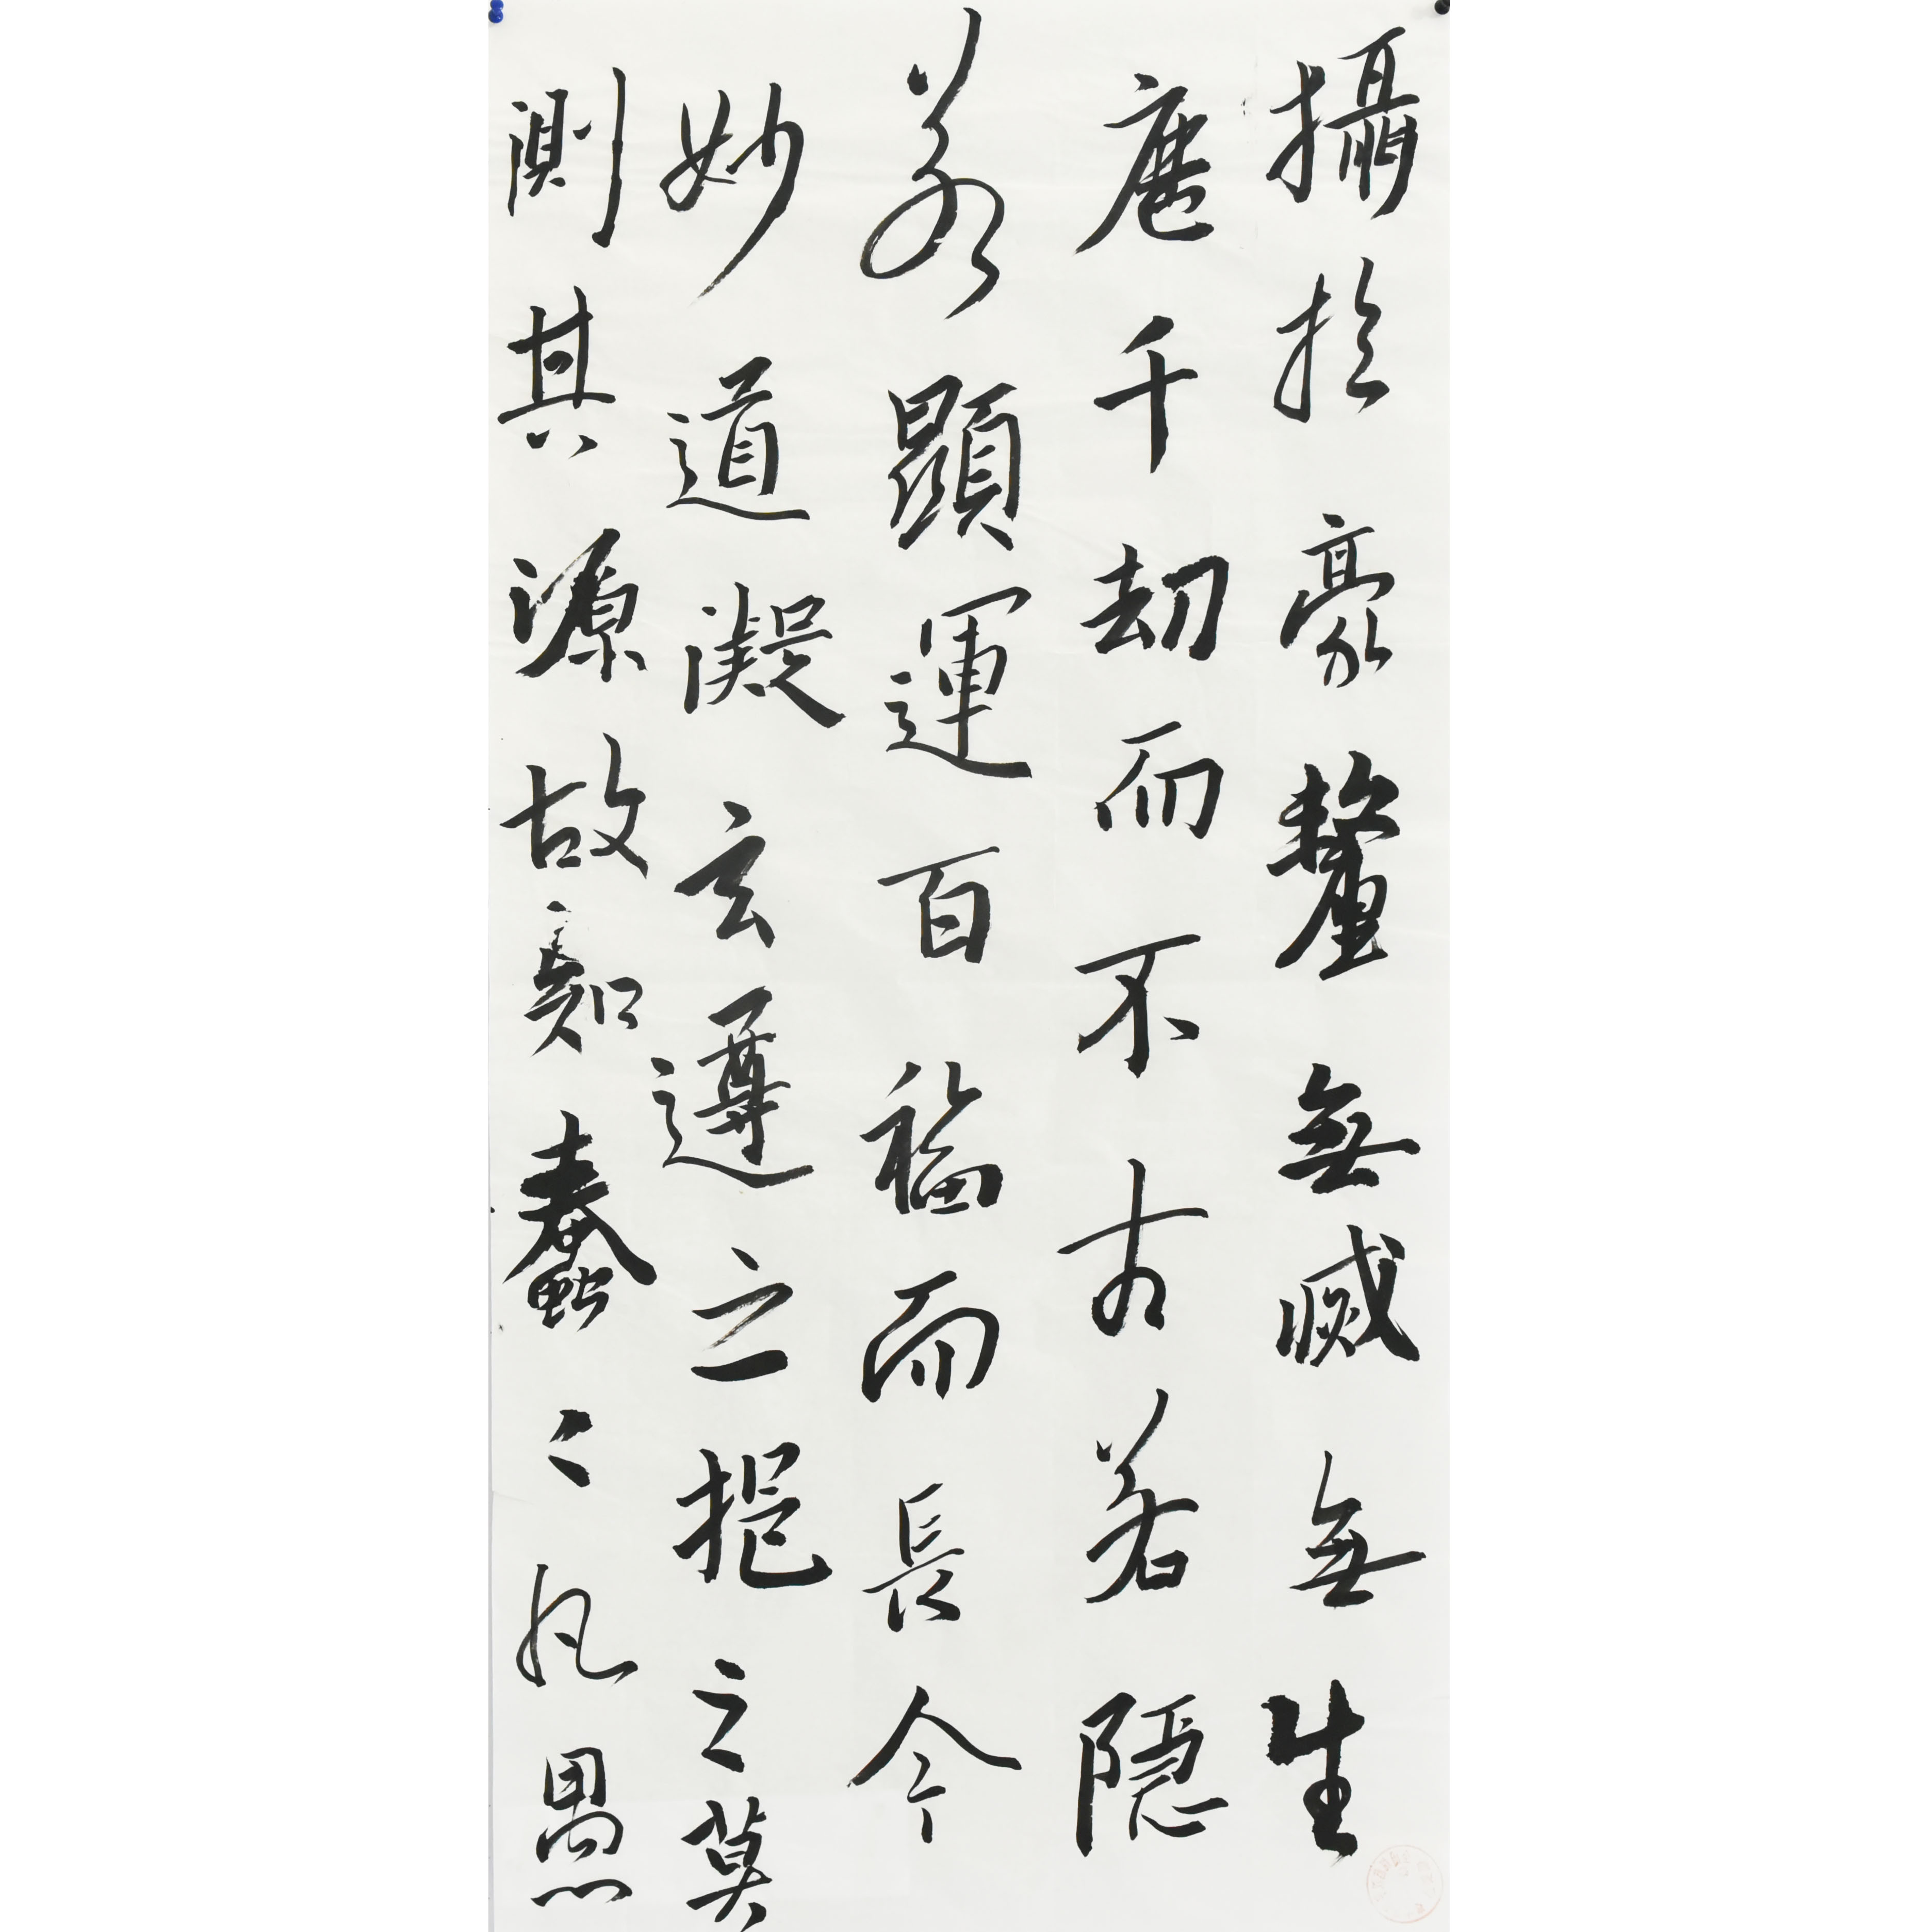 攝於豪釐無滅無生
歷千劫而不古若隱
若顯運百福而長今
妙道凝玄遵之挹之莫
測其源故知蠢〻凡愚